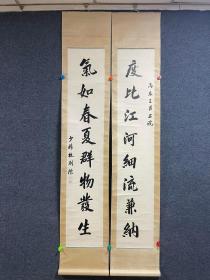 度比江河細流兼納
氣如春夏群物發生